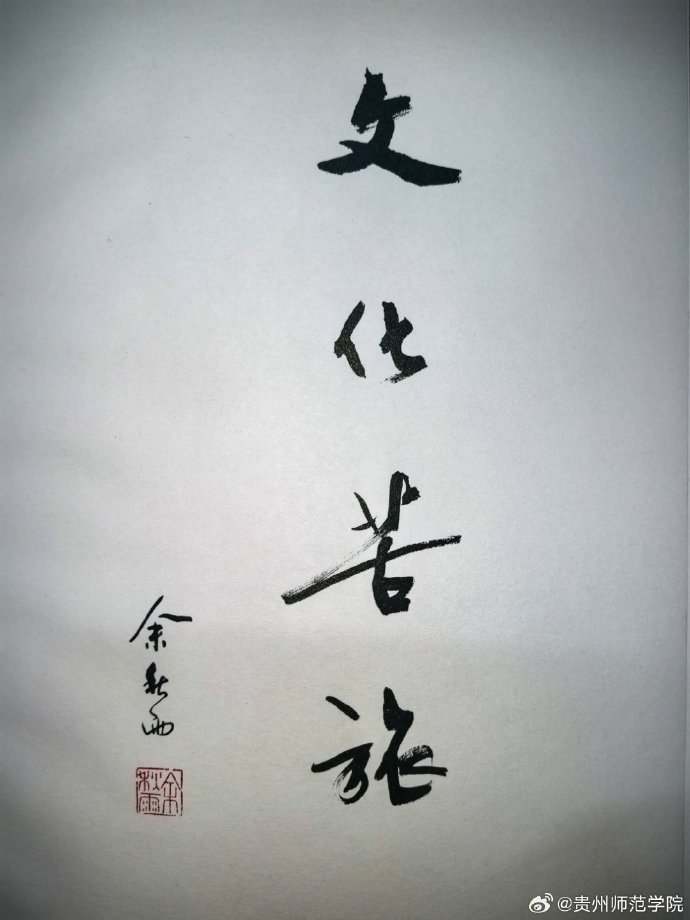 文化苦旅
余秋雨
余秋雨
@贵州师范学院